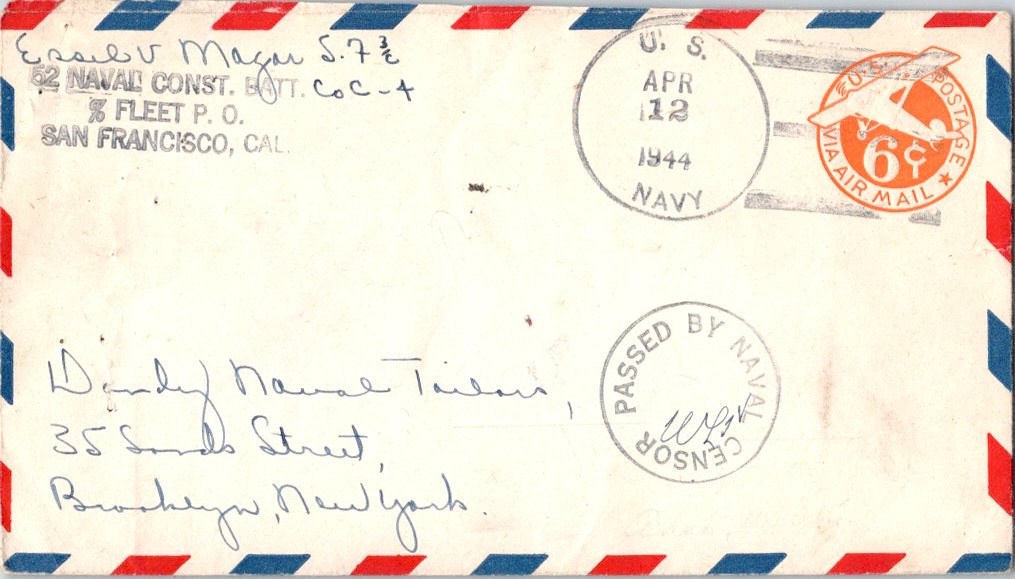 Essil V Magar S. F 3/c
52 NAVAL CONST. BATT. Co C-4
% FLEET P. O.
SAN FRANCISCO, CAL.
U. S.
APR
12
1944
NAVY
U.S. POSTAGE
6¢
VIA AIR MAIL
PASSED BY NAVAL CENSOR
Dandy Naval Tailors,
35 Sands Street,
Brooklyn, New York.